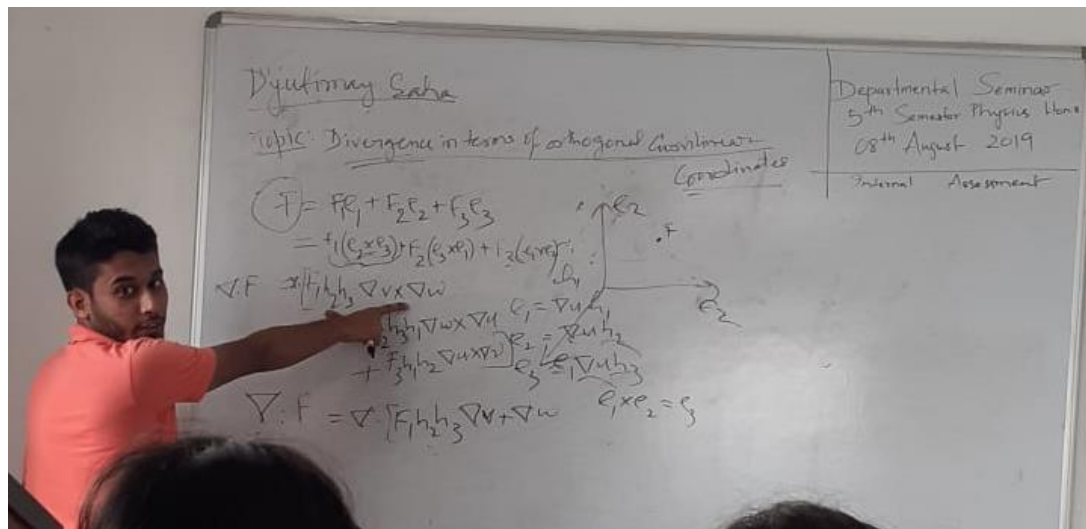 Dyutimay Saha
Topic: Divergence in terms of orthogonal Curvilinear
Coordinates
Departmental Seminar
5th Semester Physics Hons
08th August 2019
Internal Assessment
F = F₁e₁ + F₂e₂ + F₃e₃
= F₁(e₂×e₃) + F₂(e₃×e₁) + F₃(e₁×e₂)
∇.F = [F₁h₂h₃ ∇v×∇w
h₃h₁ ∇w×∇u
+ F₃h₁h₂ ∇u×∇v]
e₁ = ∇u h₁
e₂ = ∇u h₂
e₃ = ∇u h₃
e₁×e₂ = e₃
∇.F = ∇.[F₁h₂h₃ ∇v+∇w
e₂
F
e₂